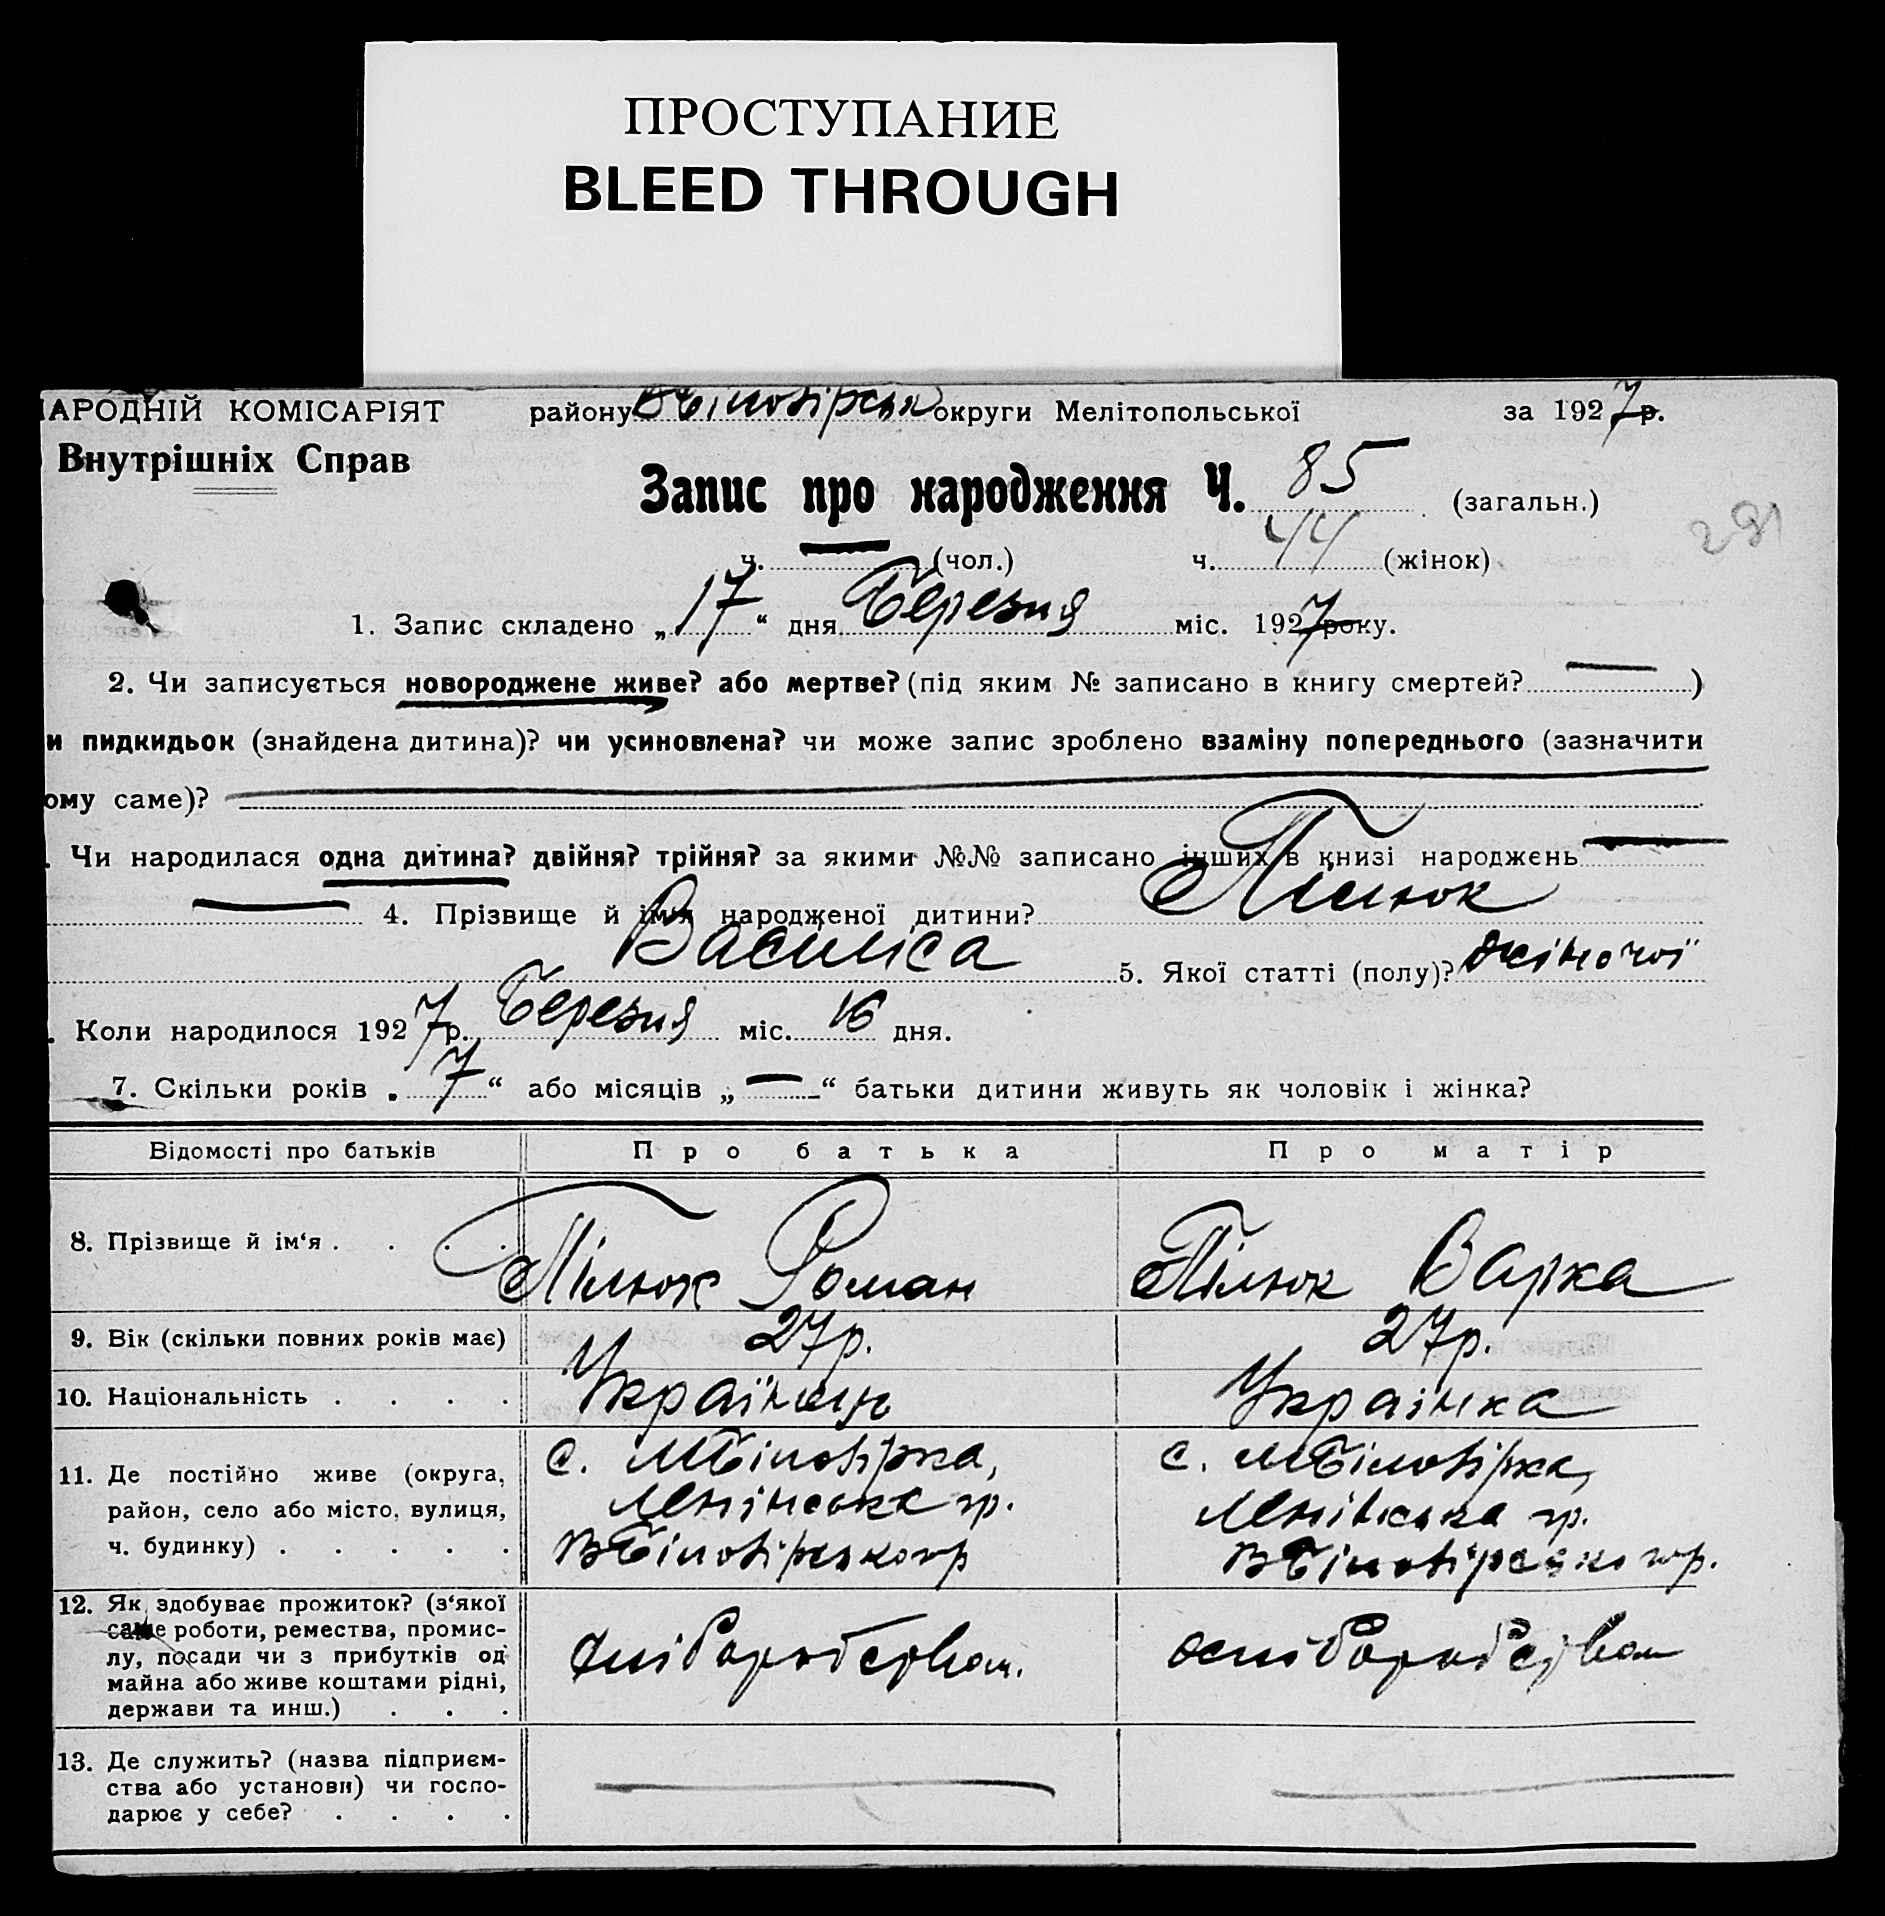 ПРОСТУПАНИЕ
BLEED THROUGH
АРОДНІЙ КОМІСАРІЯТ району ВБілозірськ округи Мелітопольської за 1927 р.
Внутрішніх Справ
Запис про народження Ч. 85 (загальн.)
291
ч. — (чол.) ч. 44 (жінок)
1. Запис складено „17“ дня Березня міс. 1927 року.
2. Чи записується новороджене живе? або мертве? (під яким № записано в книгу смертей? — )
и пидкидьок (знайдена дитина)? чи усиновлена? чи може запис зроблено взаміну попереднього (зазначити
ому саме)? —
. Чи народилася одна дитина? двійня? трійня? за якими №№ записано інших в книзі народжень —
— 4. Прізвище й ім'я народженої дитини? Пілюк
Василіса 5. Якої статті (полу)? жіночої
. Коли народилося 1927 р. Березня міс. 16 дня.
7. Скільки років „7“ або місяців „—“ батьки дитини живуть як чоловік і жінка?
Відомості про батьків Про батька Про матір
8. Прізвище й ім‘я . . . . Пілюк Роман Пілюк Варка
9. Вік (скільки повних років має) 27 р. 27 р.
10. Національність . . . . Українець Українка
11. Де постійно живе (округа, с. МБілозірка, с. МБілозірка,
район, село або місто, вулиця, Ленінська гр. Ленінська гр.
ч. будинку) . . . . .
12. Як здобуває прожиток? (з‘якої
саме роботи, ремества, промис-
лу, посади чи з прибутків од хліборобством. хліборобством
майна або живе коштами рідні,
держави та инш.) . . .
13. Де служить? (назва підприєм-
ства або установи) чи госпо- — —
дарює у себе? . . . .